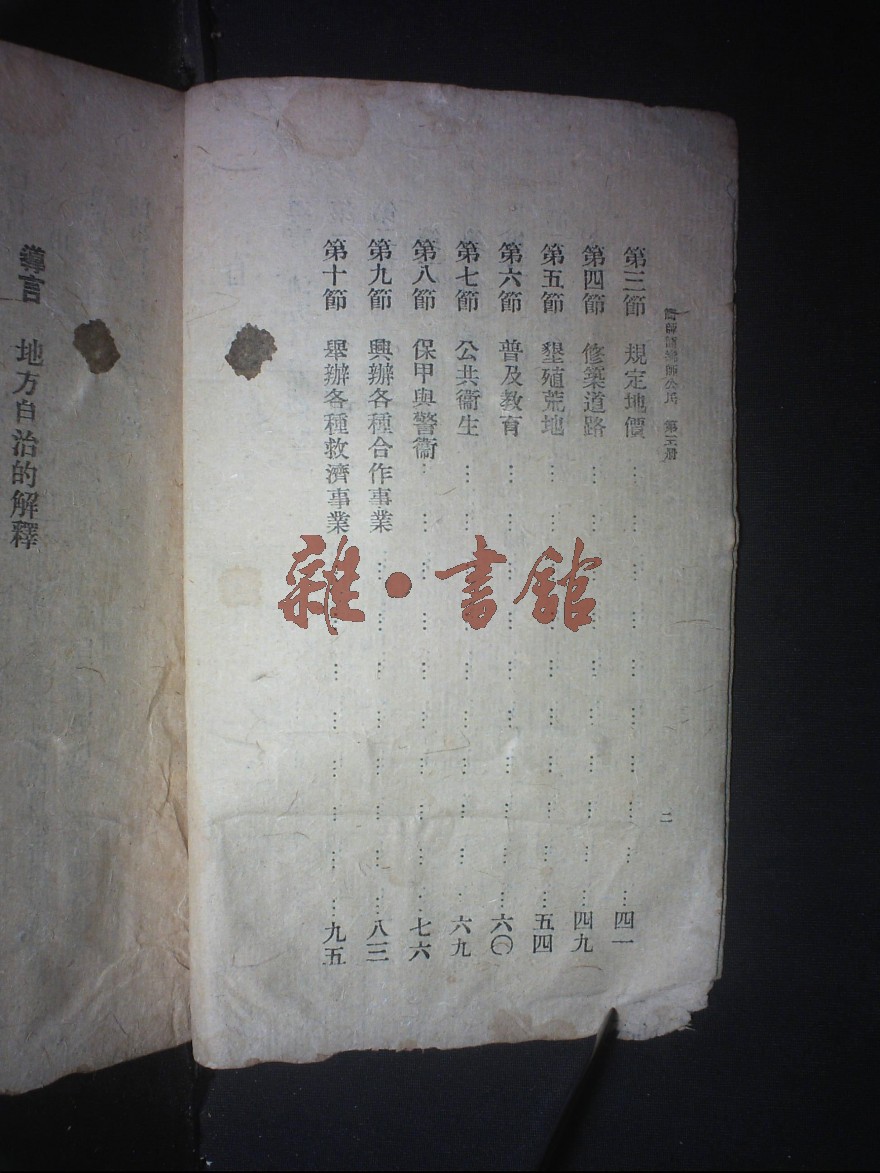 第三冊
二
第三節 規定地價 四一
第四節 修築道路 四九
第五節 墾殖荒地 五四
第六節 普及教育 六〇
第七節 公共衞生 六九
第八節 保甲與警衞 七六
第九節 興辦各種合作事業 八三
第十節 舉辦各種救濟事業 九五
導言 地方自治的解釋
雜·書館